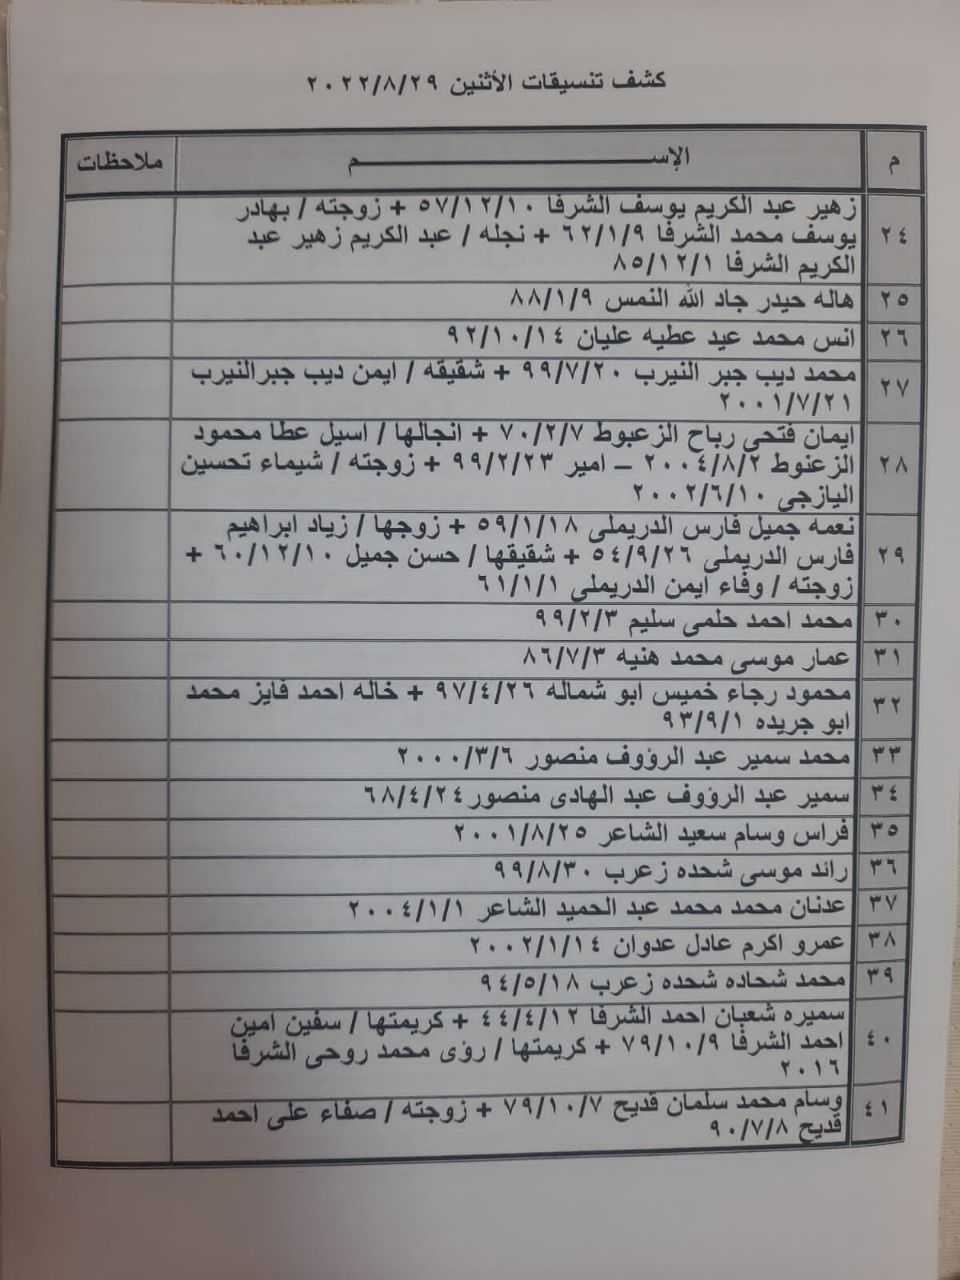 كشف تنسيقات الأثنين ٢٠٢٢/٨/٢٩
م الإســـم ملاحظات
٢٤ زهير عبد الكريم يوسف الشرفا ٥٧/١٢/١٠ + زوجته / بهادر
يوسف محمد الشرفا ٦٢/١/٩ + نجله / عبد الكريم زهير عبد
الكريم الشرفا ٨٥/١٢/١
٢٥ هاله حيدر جاد الله النمس ٨٨/١/٩
٢٦ انس محمد عيد عطيه عليان ٩٢/١٠/١٤
٢٧ محمد ديب جبر النيرب ٩٩/٧/٢٠ + شقيقه / ايمن ديب جبرالنيرب
٢٠٠١/٧/٢١
٢٨ ايمان فتحى رباح الزعبوط ٧٠/٢/٧ + انجالها / اسيل عطا محمود
الزعنوط ٢٠٠٤/٨/٢ – امير ٩٩/٢/٢٣ + زوجته / شيماء تحسين
اليازجى ٢٠٠٢/٦/١٠
٢٩ نعمه جميل فارس الدريملى ٥٩/١/١٨ + زوجها / زياد ابراهيم
فارس الدريملى ٥٤/٩/٢٦ + شقيقها / حسن جميل ٦٠/١٢/١٠ +
زوجته / وفاء ايمن الدريملي ٦١/١/١
٣٠ محمد احمد حلمى سليم ٩٩/٢/٣
٣١ عمار موسى محمد هنيه ٨٦/٧/٣
٣٢ محمود رجاء خميس ابو شماله ٩٧/٤/٢٦ + خاله احمد فايز محمد
ابو جريده ٩٣/٩/١
٣٣ محمد سمير عبد الرؤوف منصور ٢٠٠٠/٣/٦
٣٤ سمير عبد الرؤوف عبد الهادى منصور٦٨/٤/٢٤
٣٥ فراس وسام سعيد الشاعر ٢٠٠١/٨/٢٥
٣٦ رائد موسى شحده زعرب ٩٩/٨/٣٠
٣٧ عدنان محمد محمد عبد الحميد الشاعر ٢٠٠٤/١/١
٣٨ عمرو اكرم عادل عدوان ٢٠٠٢/١/١٤
٣٩ محمد شحاده شحده زعرب ٩٤/٥/١٨
٤٠ سميره شعبان احمد الشرفا ٤٤/٤/١٢ + كريمتها / سفين امين
احمد الشرفا ٧٩/١٠/٩ + كريمتها / رؤى محمد روحى الشرفا
٢٠١٦
٤١ وسام محمد سلمان قديح ٧٩/١٠/٧ + زوجته / صفاء على احمد
قديح ٩٠/٧/٨